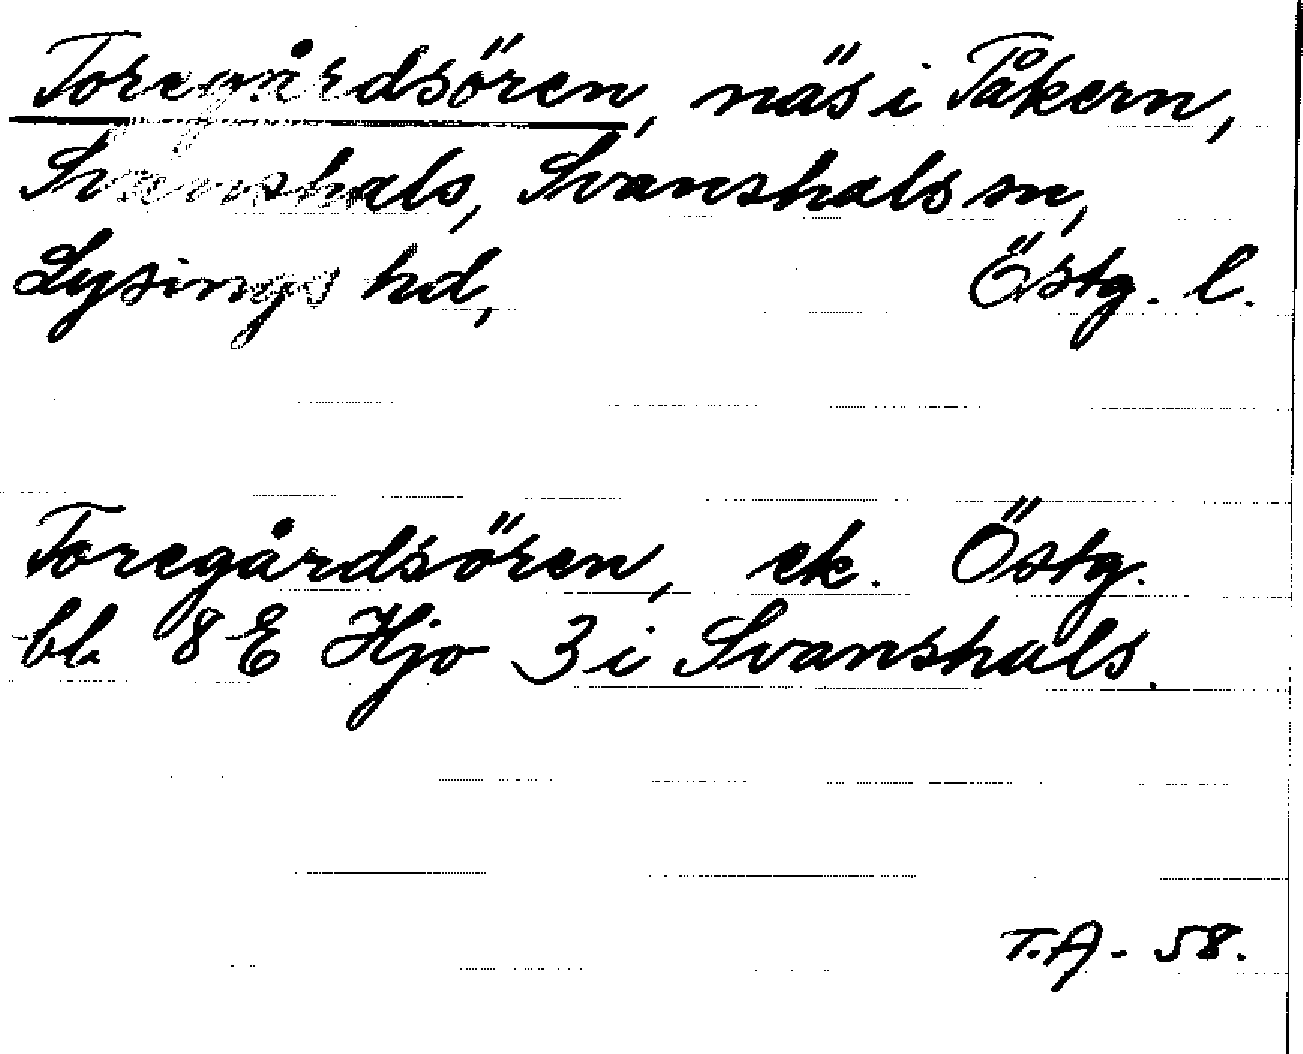 Toregårdsören, näs i Tåkern,
Svanshals, Svanshals sn,
Lysings hd, Östg. l.
Toregårdsören, ek. Östg.
bl. 8 E Hjo 3 i Svanshals.
T.A. 58.